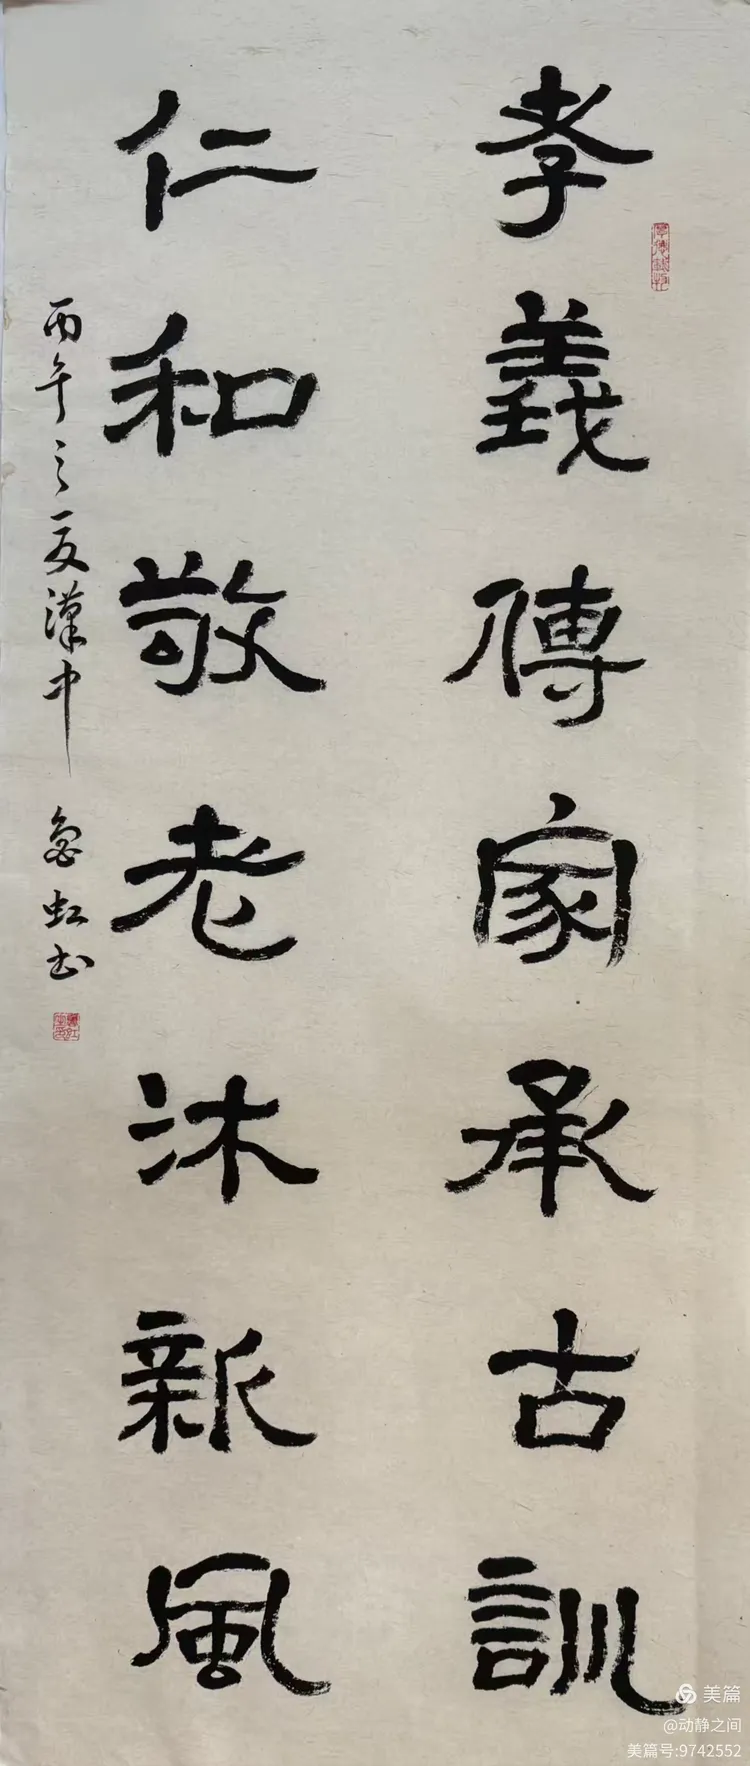 孝義傳家承古訓
仁和敬老沐新風
丙午之夏漢中
魯虹书
美篇
@动静之间
美篇号:9742552